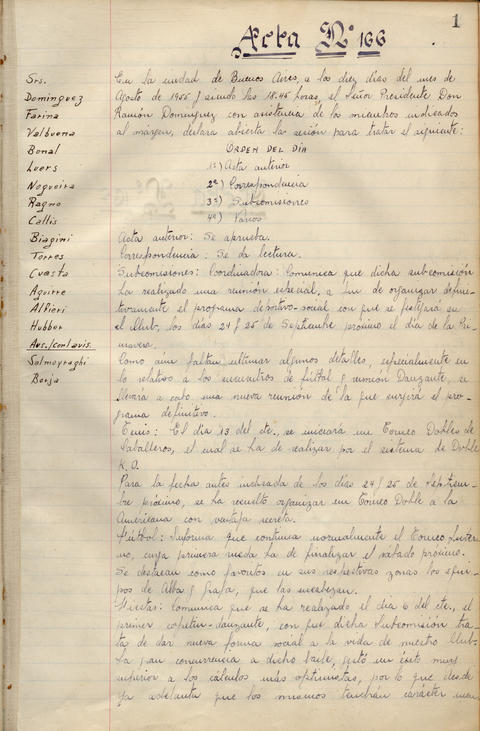 1
Acta Nº 166
Srs.
Dominguez
Farina
Valbuena
Bonal
Loers
Nogueira
Ragno
Callis
Biagini
Torres
Cuasta
Aguirre
Alfieri
Hubber
Aus./con/avis.
Salmoyraghi
Borja
En la ciudad de Buenos Aires, a los diez días del mes de
Agosto de 1955 y siendo las 18.45 horas, el Señor Presidente Don
Ramón Dominguez con asistencia de los miembros indicados
al márgen, declara abierta la sesión para tratar el siguiente:
ORDEN DEL DÍA
1º) Acta anterior
2º) Correspondencia
3º) Subcomisiones
4º) Varios
Acta anterior: Se aprueba.
Correspondencia: Se da lectura.
Subcomisiones: Coordinadora: Comunica que dicha subcomisión
ha realizado una reunión especial, a fin de organizar defini-
tivamente el programa deportivo-social con que se festejará en
el Club, los días 24 y 25 de Septiembre próximo el día de la Pri-
mavera.
Como aún faltan ultimar algunos detalles, especialmente en
lo relativo a los encuentros de fútbol y reunión Danzante, se
llevará a cabo una nueva reunión de la que surgirá el pro-
grama definitivo.
Tenis: El día 13 del cte., se iniciará un Torneo Dobles de
Caballeros, el cual se ha de realizar por el sistema de Doble
K.O.
Para la fecha antes indicada de los días 24 y 25 de Septiem-
bre próximo, se ha resuelto organizar un Torneo Doble a la
Americana con ventaja secreta.
Fútbol: Informa que continúa normalmente el Torneo Inter
no, cuya primera rueda ha de finalizar el sábado próximo.
Se destacan como favoritos en sus respectivas zonas los equi-
pos de Alba y Grafa, que las encabezan.
Fiestas: Comunica que se ha realizado el día 6 del cte., el
primer copetín-danzante, con que dicha Subcomisión tra-
ta de dar nueva forma social a la vida de nuestro Club.
La gran concurrencia a dicho baile, gustó un éxito muy
superior a los cálculos más optimistas, por lo que desde
ya adelanta que los mismos tendrán carácter men